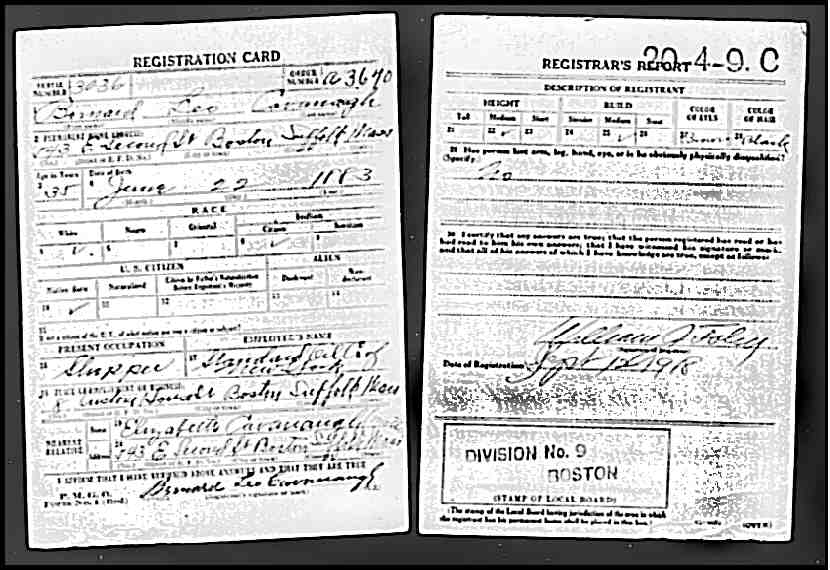 REGISTRATION CARD
SERIAL NUMBER 3036 ORDER NUMBER A3640
Bernard Leo Cavanaugh
2 PERMANENT HOME ADDRESS:
743 E Second St Boston Suffolk Mass
Age in Years Date of Birth
35 June 22 1883
RACE
White Negro Oriental Indian
Citizen
U. S. CITIZEN ALIEN
Native Born Naturalized Citizen by Father's Naturalization Before Registrant's Majority Declarant Non-declarant
10 11 12 13 14
15
If not a citizen of the U.S., of what nation are you a citizen or subject?
PRESENT OCCUPATION EMPLOYER'S NAME
16 Shipper 17 Standard Oil Co of New York
PLACE OF EMPLOYMENT OR BUSINESS
Custom House St Boston Suffolk Mass
NEAREST RELATIVE Name 19 Elizabeth Cavanaugh
Address 20 743 E Second St Boston Suffolk Mass
I AFFIRM THAT I HAVE VERIFIED ABOVE ANSWERS AND THAT THEY ARE TRUE
P. M. G. O.
Form No. 1 (Red) Bernard Leo Cavanaugh
REGISTRAR'S REPORT 20-4-9. C
DESCRIPTION OF REGISTRANT
HEIGHT BUILD COLOR OF EYES COLOR OF HAIR
Tall Medium Short Slender Medium Stout
21 22 23 24 25 26 27 Brown 28 Black
29 Has person lost arm, leg, hand, eye, or is he obviously physically disqualified?
(Specify.) No
30 I certify that my answers are true; that the person registered has read or has
had read to him his own answers; that I have witnessed his signature or mark,
and that all of his answers of which I have knowledge are true, except as follows:
William J Foley
Date of Registration Sept 12 1918
DIVISION No. 9
BOSTON
(STAMP OF LOCAL BOARD)
(The stamp of the Local Board having jurisdiction of the area in which
the registrant has his permanent home shall be placed in this box.)
(OVER)